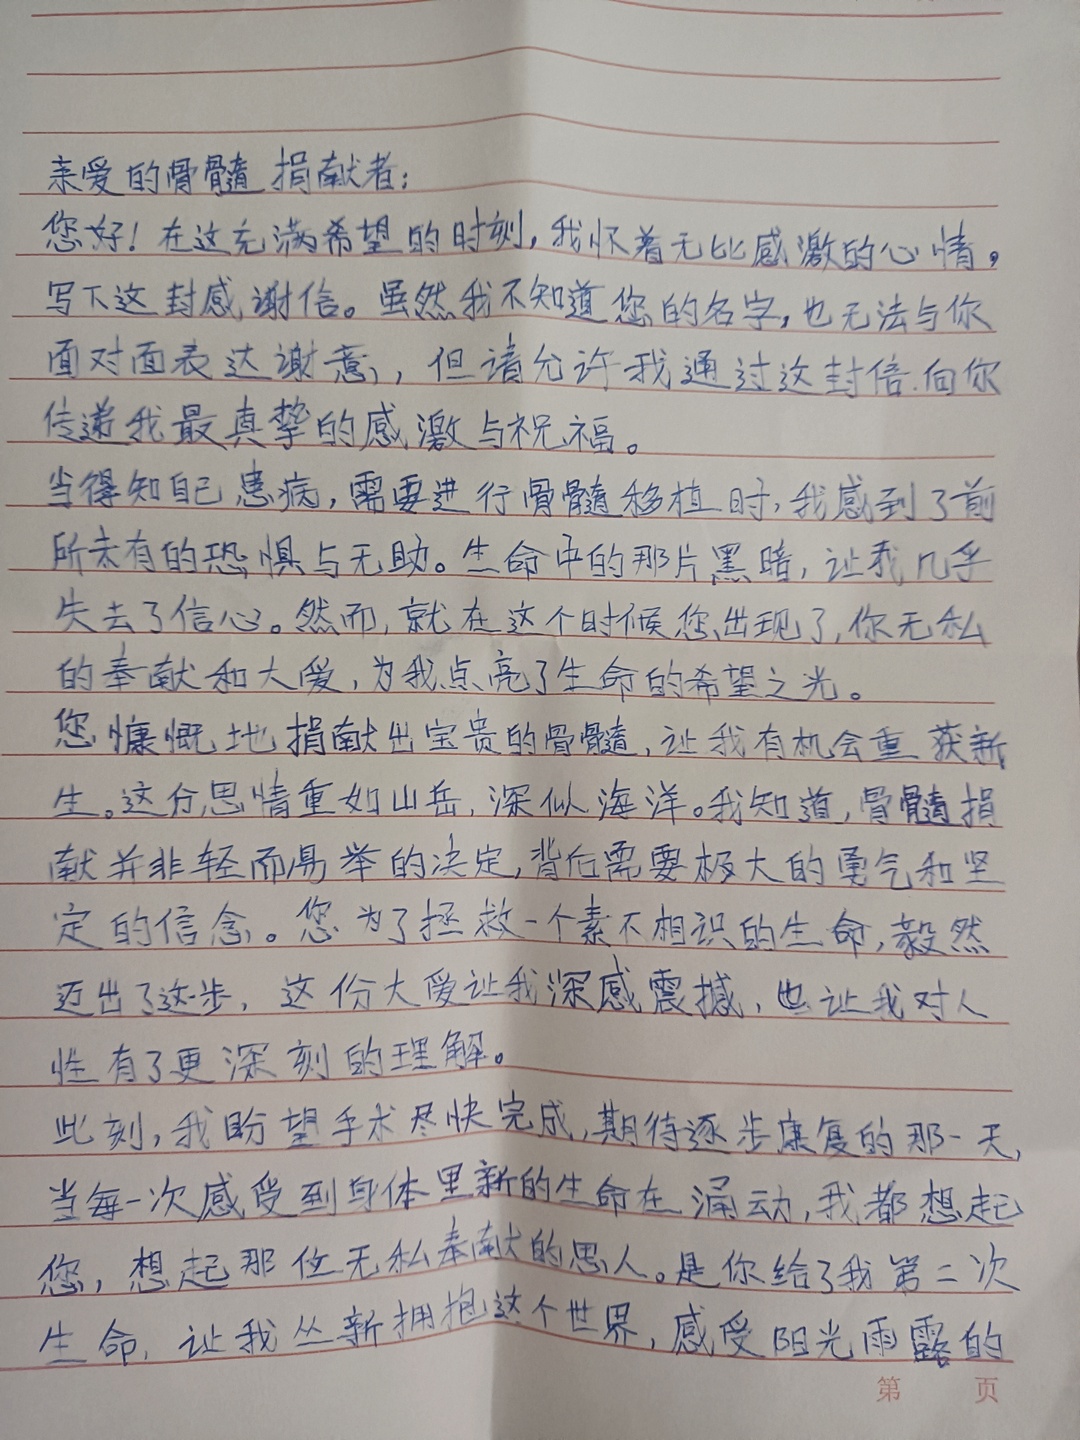 亲爱的骨髓捐献者：
您好！在这充满希望的时刻，我怀着无比感激的心情，
写下这封感谢信。虽然我不知道您的名字，也无法与你
面对面表达谢意，但请允许我通过这封信.向你
传递我最真挚的感激与祝福。
当得知自己患病，需要进行骨髓移植时，我感到了前
所未有的恐惧与无助。生命中的那片黑暗，让我几乎
失去了信心。然而，就在这个时候您出现了，你无私
的奉献和大爱，为我点亮了生命的希望之光。
您慷慨地捐献出宝贵的骨髓，让我有机会重获新
生。这份恩情重如山岳，深似海洋。我知道，骨髓捐
献并非轻而易举的决定，背后需要极大的勇气和坚
定的信念。您为了拯救一个素不相识的生命，毅然
迈出了这步，这份大爱让我深感震撼，也让我对人
性有了更深刻的理解。
此刻，我盼望手术尽快完成，期待逐步康复的那一天，
当每一次感受到身体里新的生命在涌动，我都想起
您，想起那位无私奉献的恩人。是你给了我第二次
生命，让我从新拥抱这个世界，感受阳光雨露的
第 页